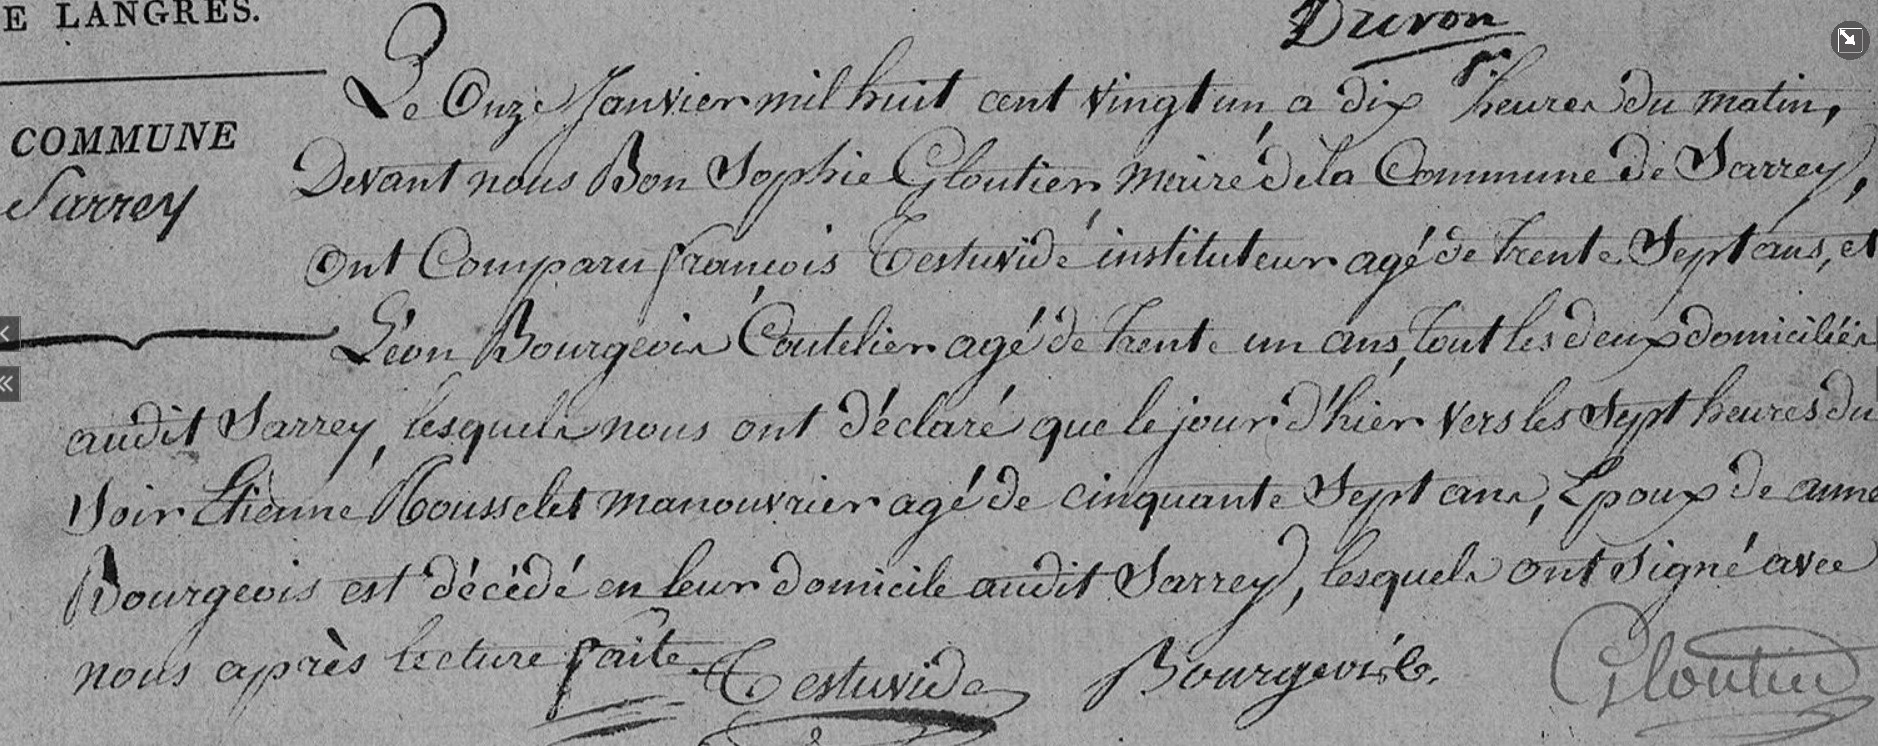 E LANGRES.
Drevon
COMMUNE
Sarrey
Le Onze Janvier mil huit cent vingt un, a dix heures du matin,
Devant nous Bon Sophie Gloutier, maire de la Commune de Sarrey,
Ont Comparu françois Testuvide instituteur agé de trente Sept ans, et
Léon Bourgeois Coutelier agé de trente un ans, tout les deux domiciliés
audit Sarrey, lesquels nous ont déclaré que le jour d'hier vers les Sept heures du
Soir Etienne Rousselet manouvrier agé de cinquante Sept ans, Epoux de anne
Bourgeois est décédé en leur domicile audit Sarrey, lesquels ont signé avec
nous après lecture faite.
Testuvide Bourgeois Gloutier